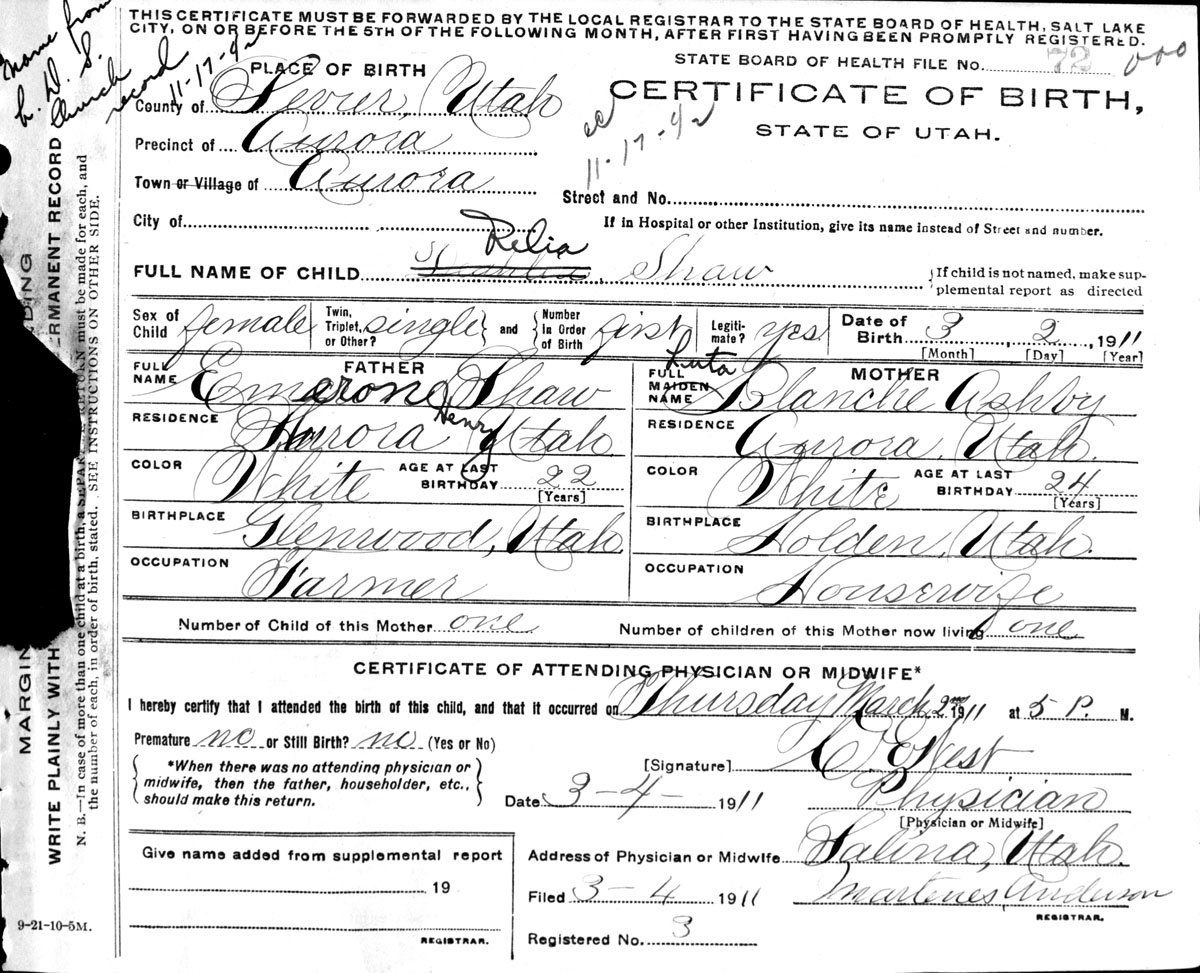 THIS CERTIFICATE MUST BE FORWARDED BY THE LOCAL REGISTRAR TO THE STATE BOARD OF HEALTH, SALT LAKE
CITY, ON OR BEFORE THE 5TH OF THE FOLLOWING MONTH, AFTER FIRST HAVING BEEN PROMPTLY REGISTERED.
Name from
L. D. S.
Church
record
11-17-42
STATE BOARD OF HEALTH FILE NO. 72 000
PLACE OF BIRTH
CERTIFICATE OF BIRTH,
STATE OF UTAH.
11-17-42
County of Sevier, Utah
Precinct of Aurora
Town or Village of Aurora
Street and No.
City of
If in Hospital or other Institution, give its name instead of Street and number.
Relia
FULL NAME OF CHILD Shaw
{If child is not named, make sup-
plemental report as directed
Sex of Child female Twin, Triplet, or Other? single} and {Number In Order of Birth first Legiti-mate? yes Date of Birth 3, 2, 1911
[Month] [Day] [Year]
FATHER
FULL NAME Emerone Shaw
Henry
RESIDENCE Aurora Utah
COLOR White AGE AT LAST BIRTHDAY 22
[Years]
BIRTHPLACE Glenwood, Utah
OCCUPATION Farmer
MOTHER
FULL MAIDEN NAME Blanche Ashby
RESIDENCE Aurora, Utah.
COLOR White AGE AT LAST BIRTHDAY 24
[Years]
BIRTHPLACE Holden, Utah.
OCCUPATION Housewife
Number of Child of this Mother one Number of children of this Mother now living one
CERTIFICATE OF ATTENDING PHYSICIAN OR MIDWIFE*
I hereby certify that I attended the birth of this child, and that it occurred on Thursday March 2nd 1911 at 5 P. M.
Premature no or Still Birth? no (Yes or No)
{*When there was no attending physician or
midwife, then the father, householder, etc.,
should make this return.}
[Signature] West
Date 3-4- 1911 Physician
[Physician or Midwife]
Give name added from supplemental report
19
REGISTRAR.
Address of Physician or Midwife Salina, Utah.
Filed 3-4 1911 Martenes Anderson
REGISTRAR.
Registered No. 3
9-21-10-5M.
MARGIN DING
WRITE PLAINLY WITH RMANENT RECORD
N. B.—In case of more than one child at a birth, a SEPARATE RETURN must be made for each, and
the number of each, in order of birth, stated. SEE INSTRUCTIONS ON OTHER SIDE.